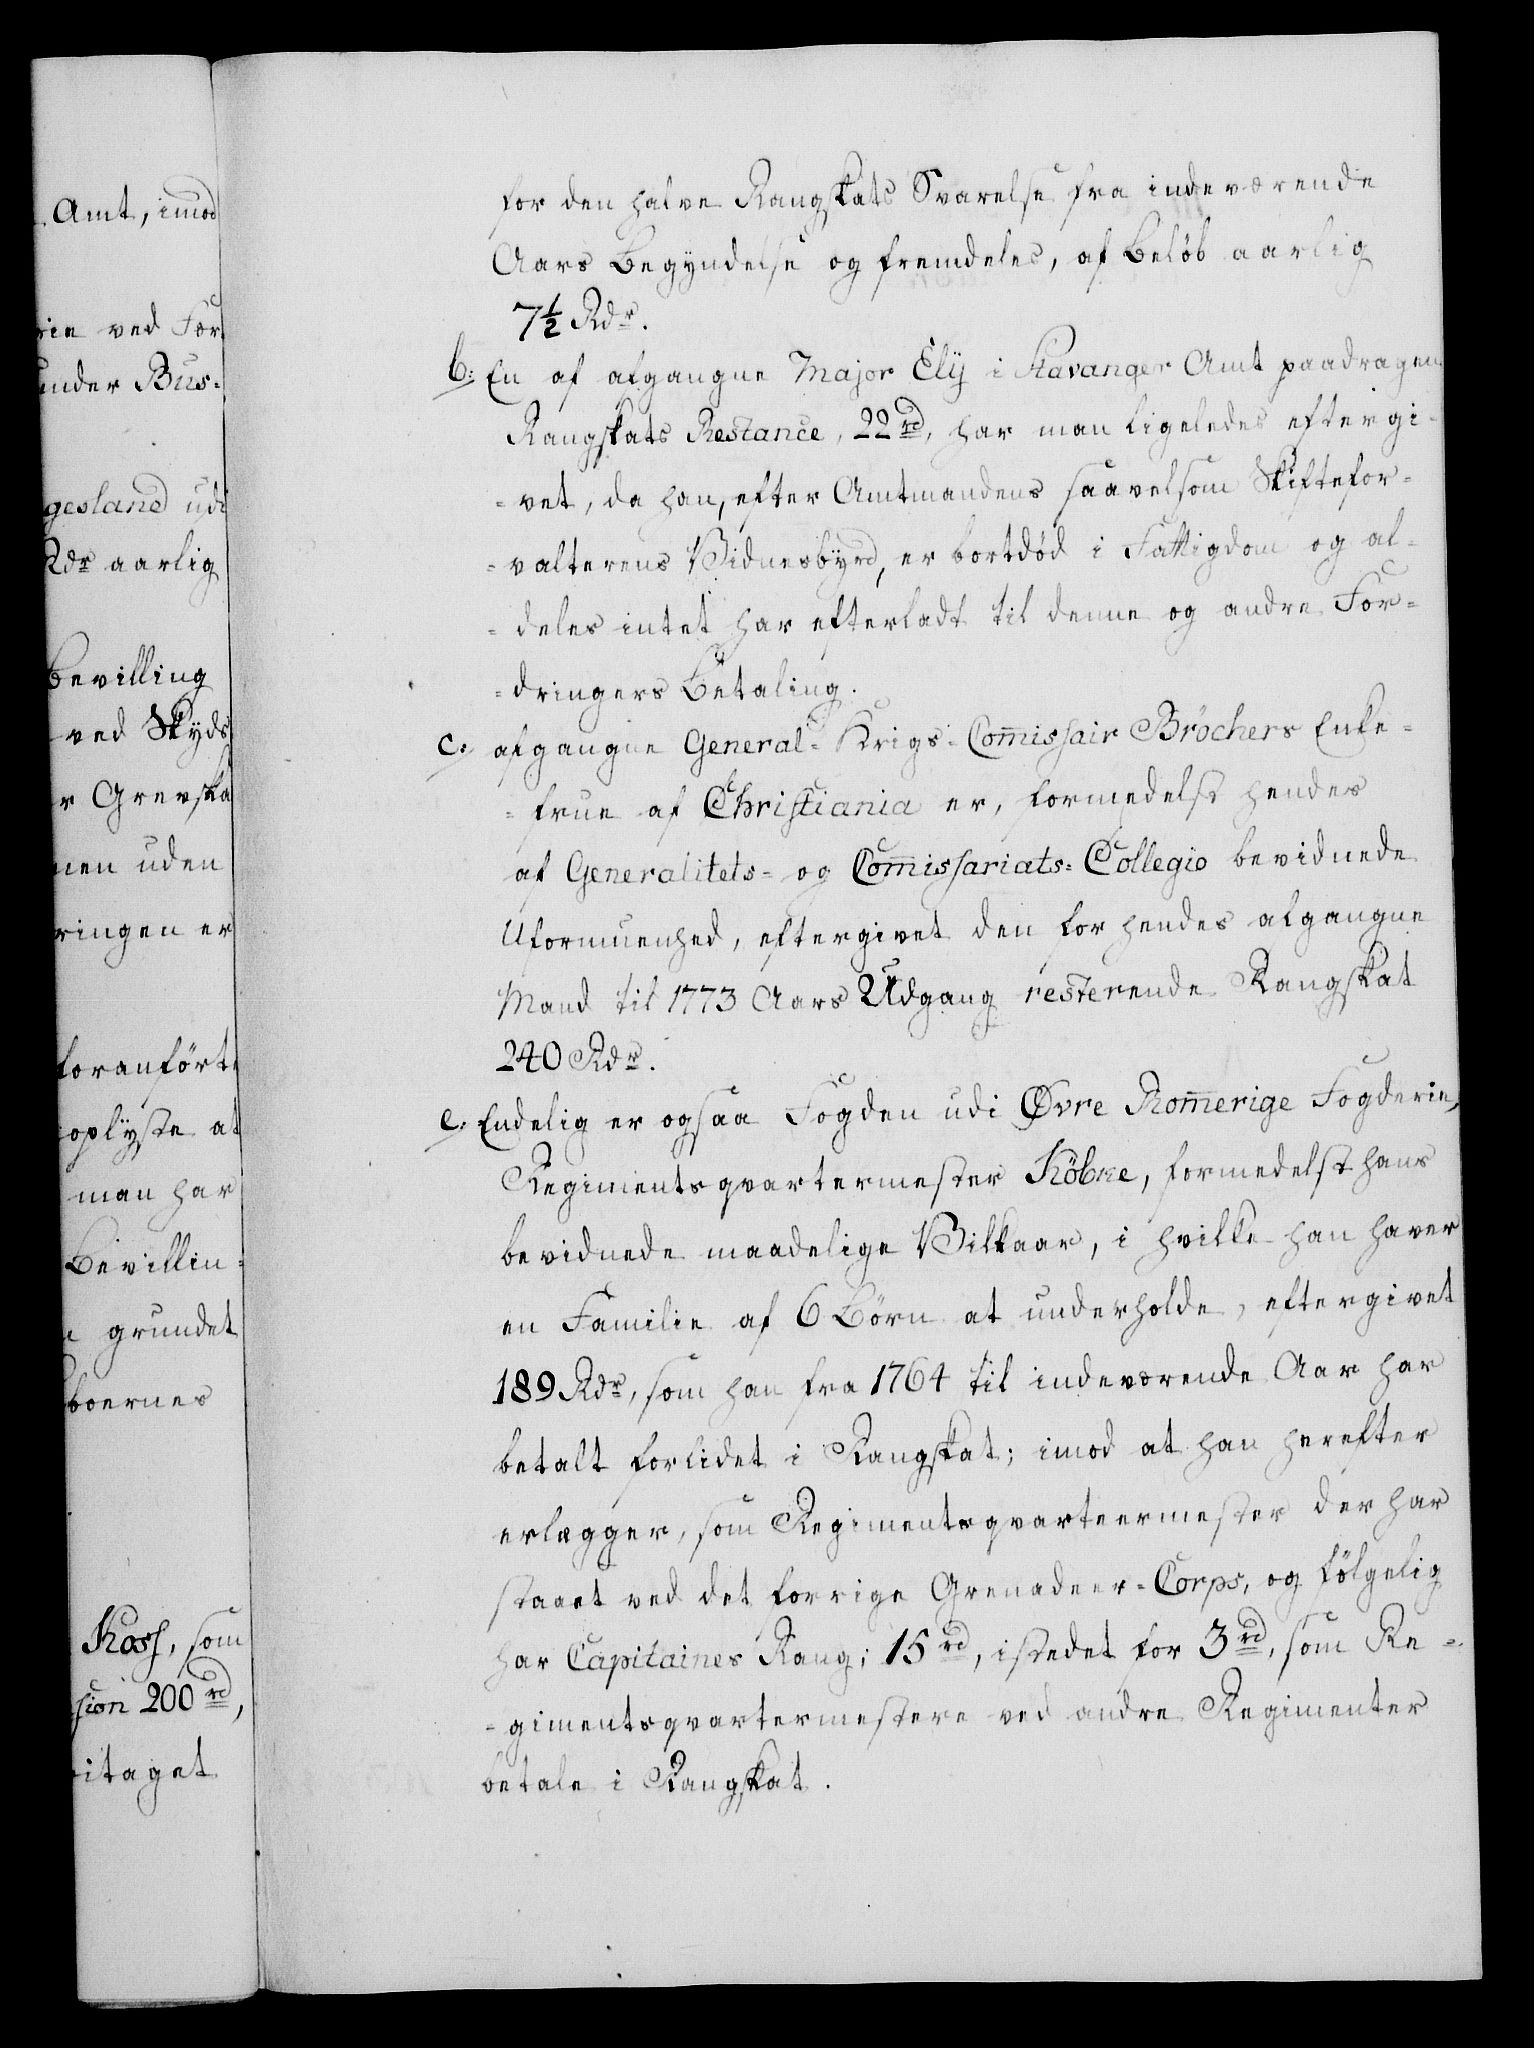 Amt, imod
rie ved For¬
under Bus¬
gesland udi
Rdr aarlig
Bevilling
ved Skyds
r Grevska
nen uden
ringen er
foranført
oplÿste at
man har
Bevillin¬
grundet
boernes
Koss, som
sion 200 rd,
itaget
for den halve Rangskats Svarelse fra indeværende
Aars Begÿndelse og fremdeles, af Beløb aarlig
7½ Rdr.
b. En af afgangne Major Elÿ i Stavanger Amt paadragen
Rangskats Restance, 22 rd, har man ligeledes eftergi¬
¬vet, da han, efter Amtmandens saavelsom Skiftefor¬
¬valterens Vidnesbÿrd, er bortdød i Fattigdom og al¬
¬deles intet har efterladt til denne og andre For¬
¬dringers Betaling.
c. afgangne General-Krigs-Commissair Bröchers Enke¬
¬frue af Christiania er, formedelst hendes
af Generalitets- og Commissariats-Collegio bevidnede
Uformuenhed, eftergivet den for hendes afgangne
Mand til 1773 Aars Udgang resterende Rangskat
240 Rdr.
e. Endelig er ogsaa Fogden udi Øvre Rommerige Fogderie,
Regimentsqvartermester Köbke, formedelst hans
bevidnede maadelige Vilkaar, i hvilke han haver
en Familie af 6 Börn at underholde, eftergivet
189 Rdr, som han fra 1764 til indeværende Aar har
betalt forlidet i Rangskat; imod at han herefter
erlægger, som Regimentsqvarteermester der har
staaet ved det forrige Grenadeer-Corps, og fölgelig
har Capitaines Rang; 15 rd, istedet for 3 rd, som Re¬
¬gimentsqvartermestere ved andre Regimenter
betale i Rangskat.